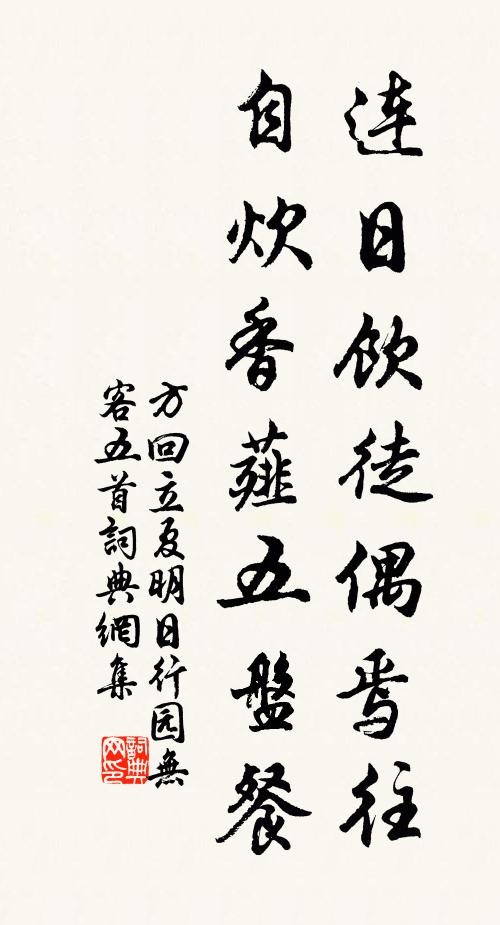 連日飲徒偶焉往
自炊香薤五盤餐
方回立夏明日行园無
客五首詞典網集
詞典网印